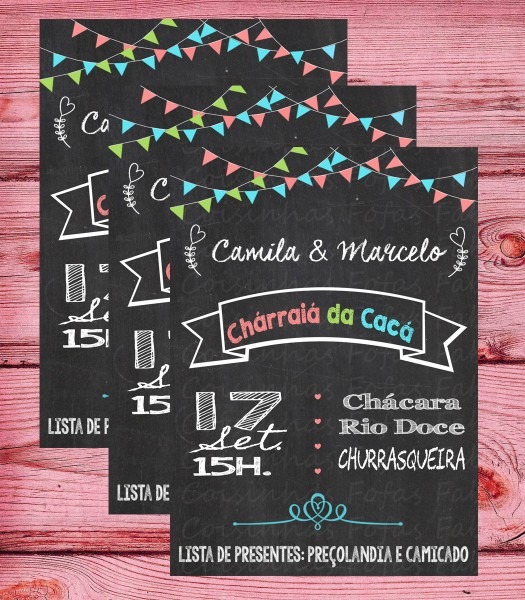 Ca
LISTA DE P
Ca
15H
LISTA DE
Camila & Marcelo
Chárraiá da Cacá
17
Set.
15H.
Chácara
Rio Doce
CHURRASQUEIRA
LISTA DE PRESENTES: PREÇOLANDIA E CAMICADO